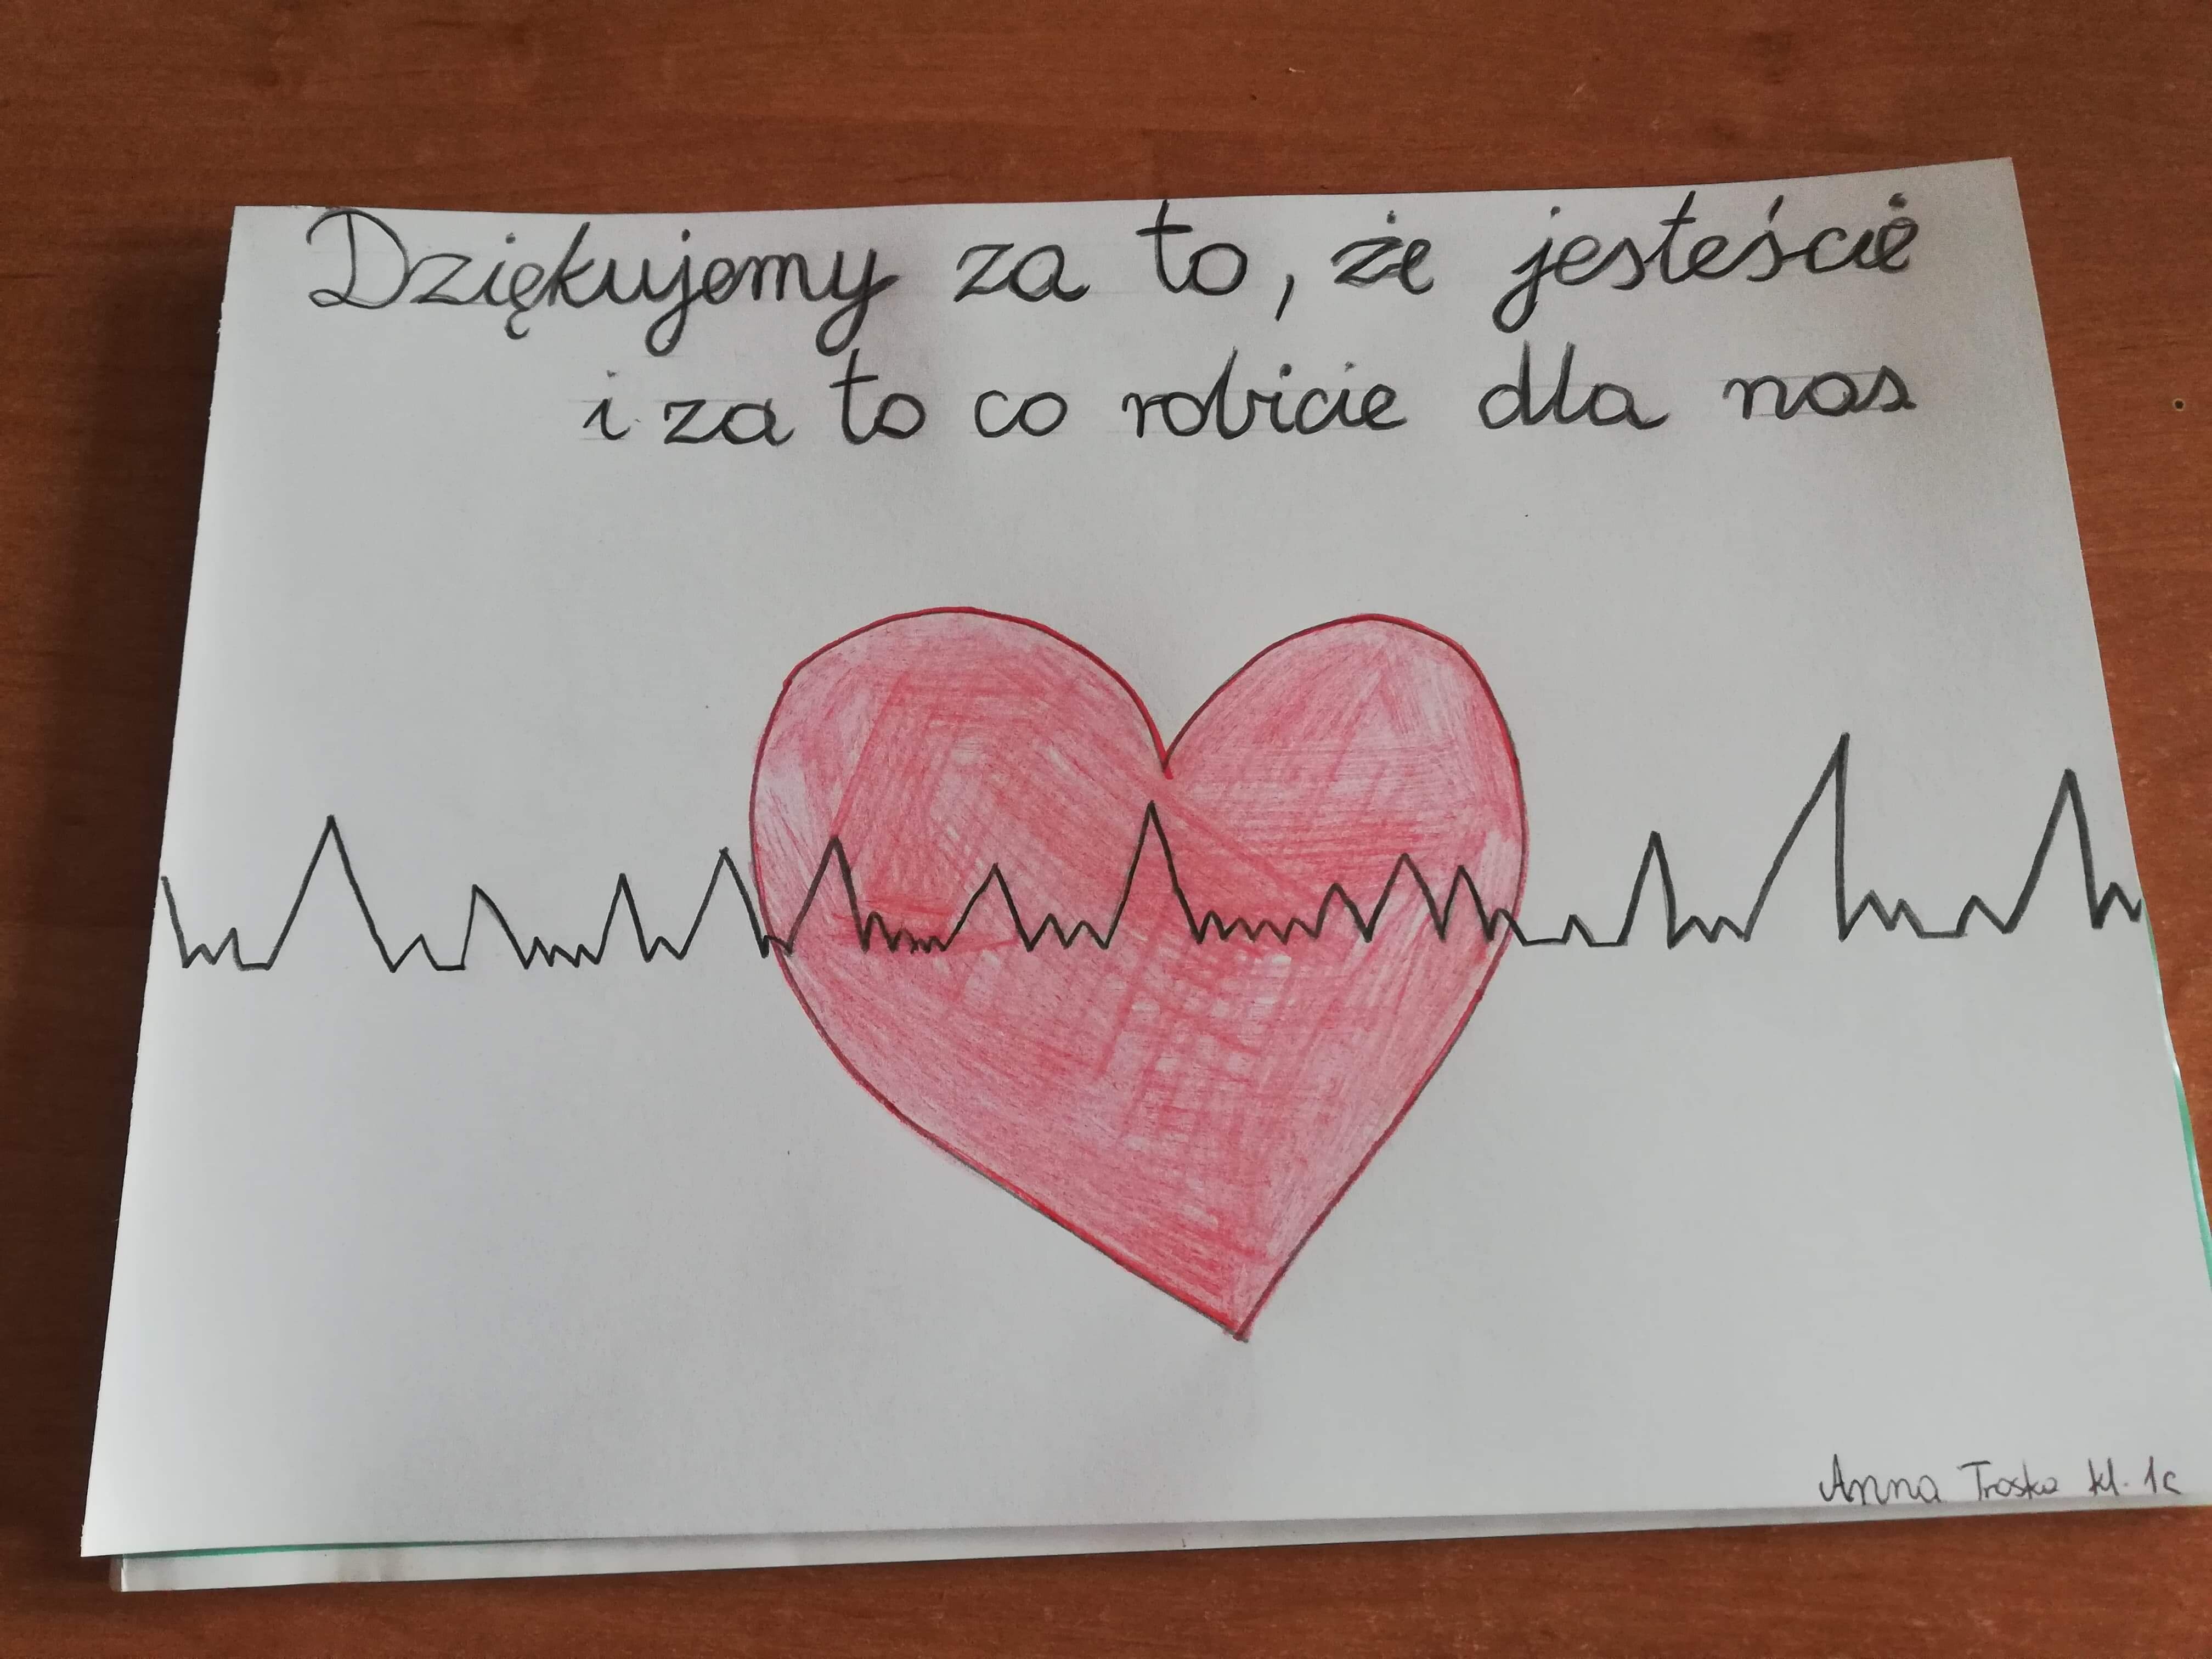 Dziękujemy za to, że jesteście
i za to co robicie dla nas
Anna Troska kl. 1c